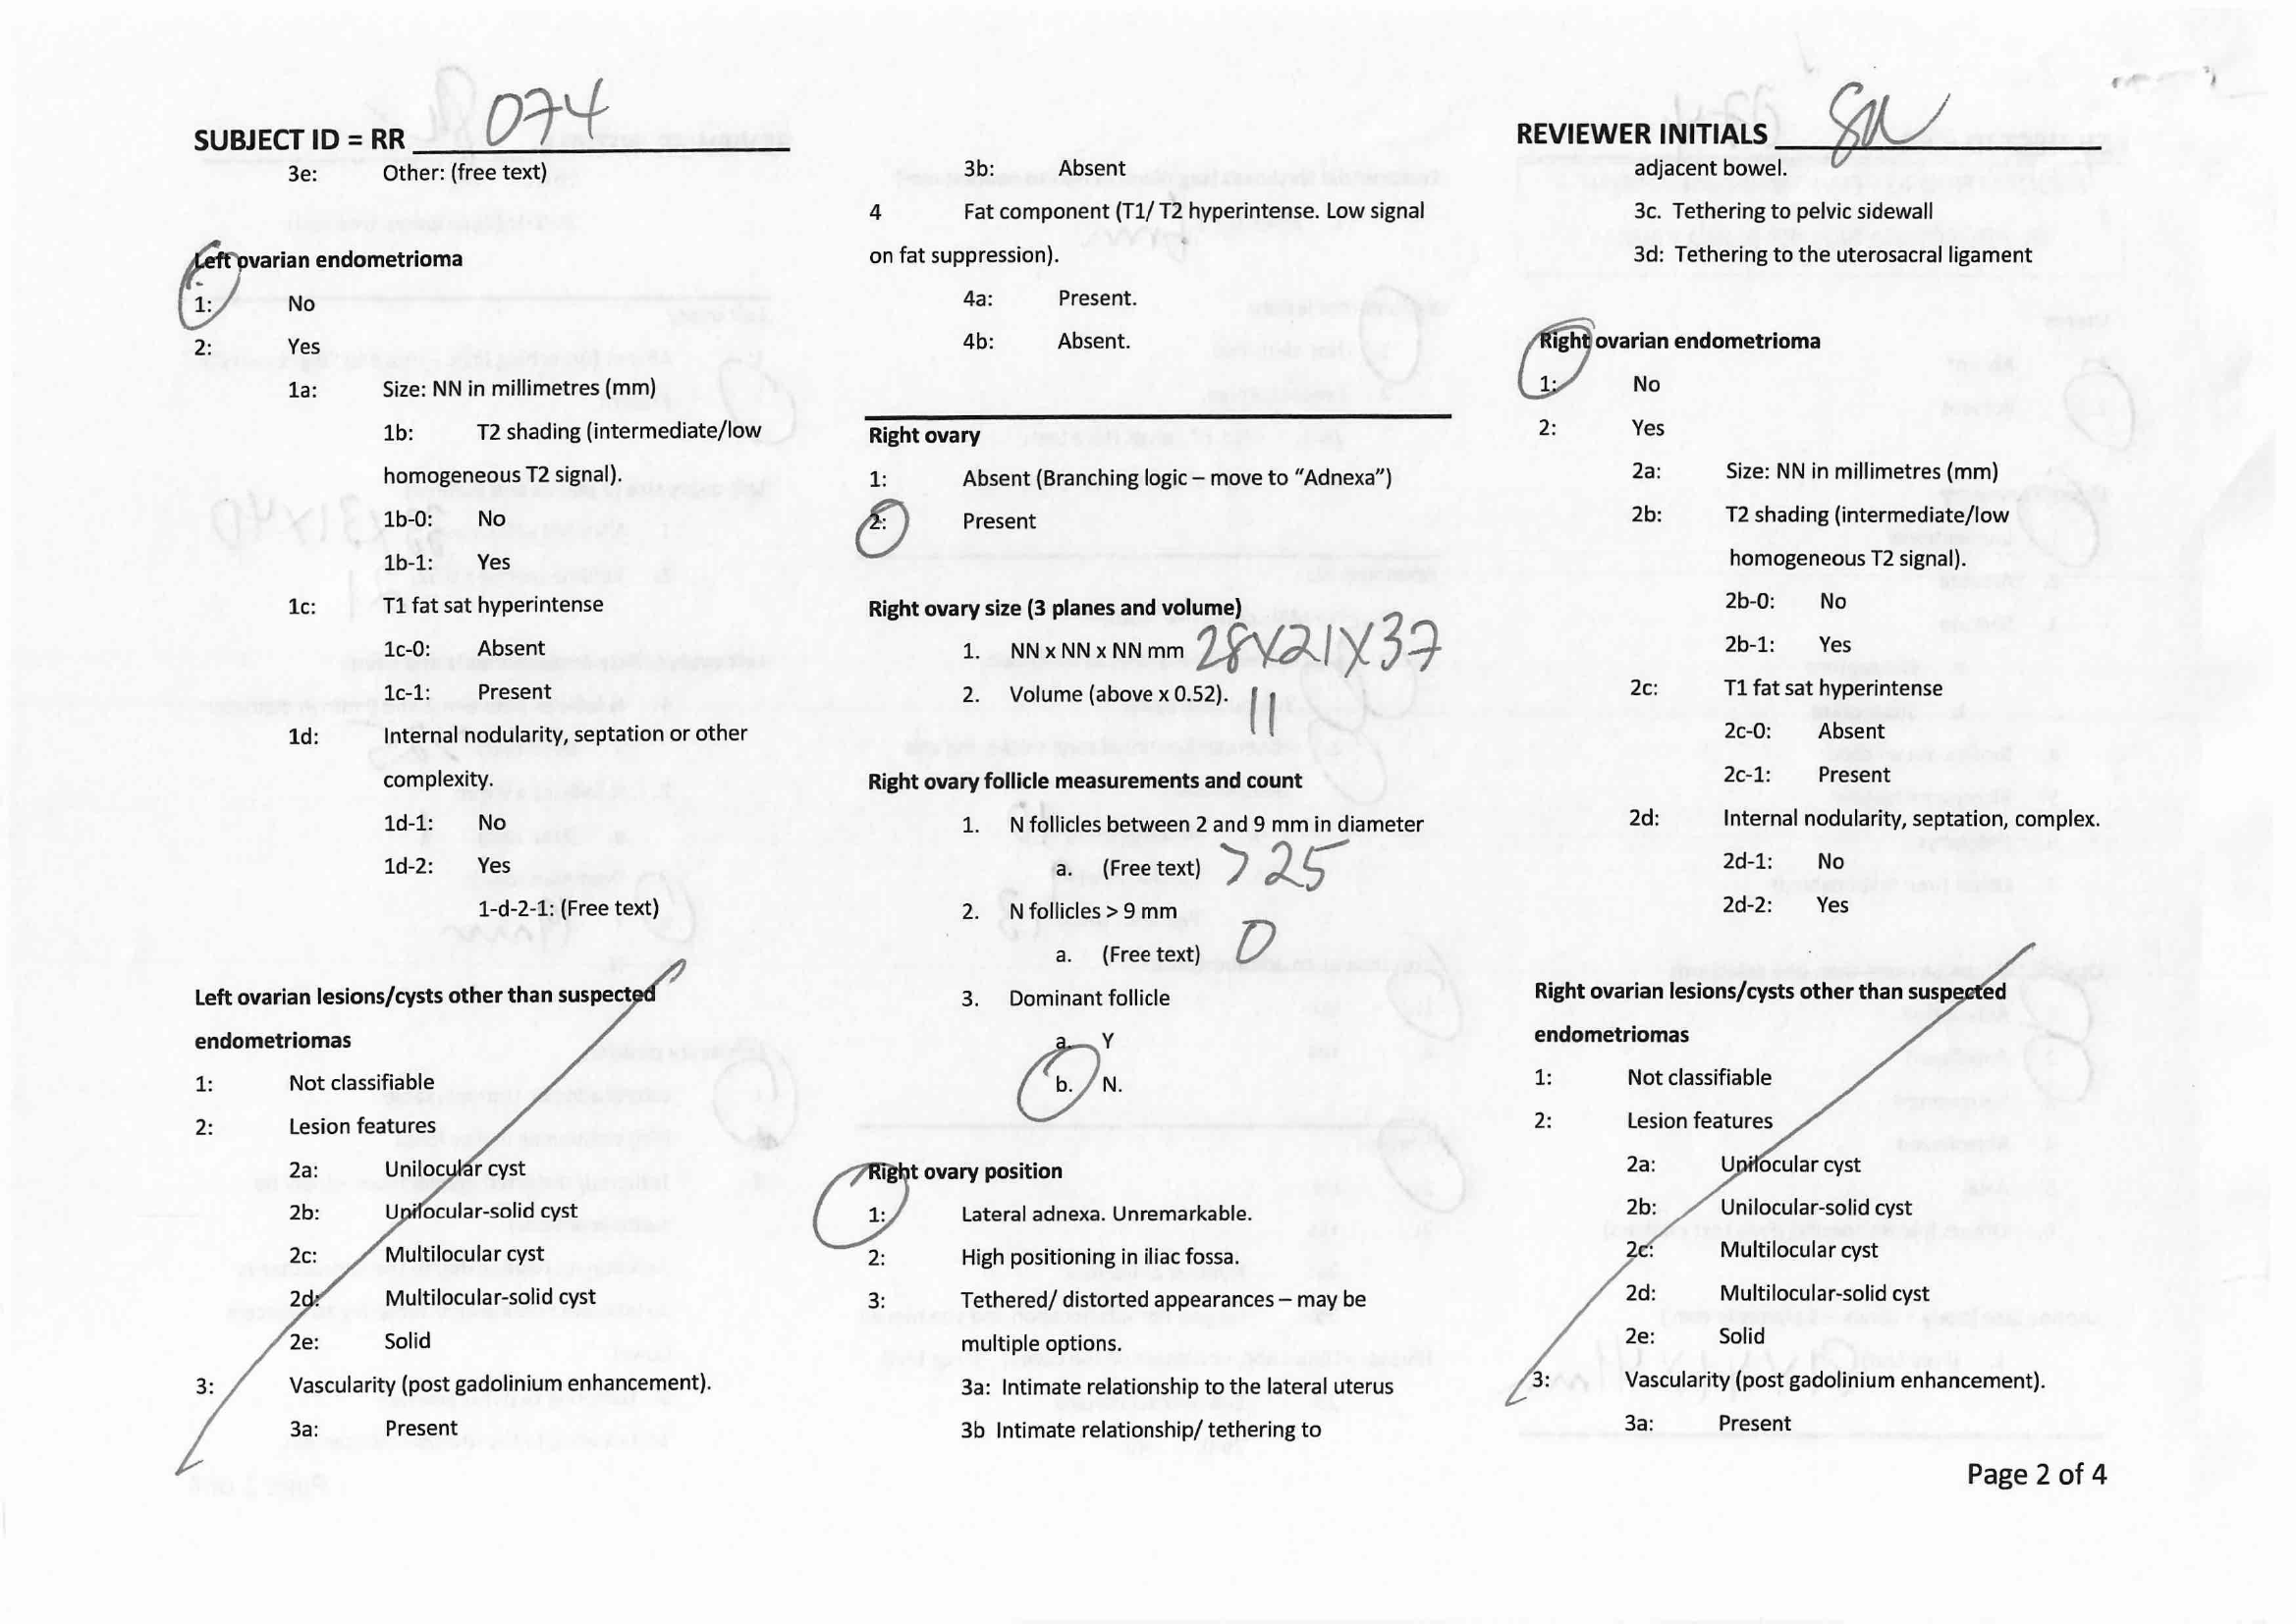 SUBJECT ID = RR 074
3e: Other: (free text)
Left ovarian endometrioma
1: No
2: Yes
1a: Size: NN in millimetres (mm)
1b: T2 shading (intermediate/low
homogeneous T2 signal).
1b-0: No
1b-1: Yes
1c: T1 fat sat hyperintense
1c-0: Absent
1c-1: Present
1d: Internal nodularity, septation or other
complexity.
1d-1: No
1d-2: Yes
1-d-2-1: (Free text)
Left ovarian lesions/cysts other than suspected
endometriomas
1: Not classifiable
2: Lesion features
2a: Unilocular cyst
2b: Unilocular-solid cyst
2c: Multilocular cyst
2d: Multilocular-solid cyst
2e: Solid
3: Vascularity (post gadolinium enhancement).
3a: Present
3b: Absent
4 Fat component (T1/ T2 hyperintense. Low signal
on fat suppression).
4a: Present.
4b: Absent.
Right ovary
1: Absent (Branching logic – move to “Adnexa”)
2: Present
Right ovary size (3 planes and volume)
1. NN x NN x NN mm 28x21x37
2. Volume (above x 0.52). 11
Right ovary follicle measurements and count
1. N follicles between 2 and 9 mm in diameter
a. (Free text) >25
2. N follicles > 9 mm
a. (Free text) 0
3. Dominant follicle
a. Y
b. N.
Right ovary position
1: Lateral adnexa. Unremarkable.
2: High positioning in iliac fossa.
3: Tethered/ distorted appearances – may be
multiple options.
3a: Intimate relationship to the lateral uterus
3b Intimate relationship/ tethering to
REVIEWER INITIALS
adjacent bowel.
3c. Tethering to pelvic sidewall
3d: Tethering to the uterosacral ligament
Right ovarian endometrioma
1: No
2: Yes
2a: Size: NN in millimetres (mm)
2b: T2 shading (intermediate/low
homogeneous T2 signal).
2b-0: No
2b-1: Yes
2c: T1 fat sat hyperintense
2c-0: Absent
2c-1: Present
2d: Internal nodularity, septation, complex.
2d-1: No
2d-2: Yes
Right ovarian lesions/cysts other than suspected
endometriomas
1: Not classifiable
2: Lesion features
2a: Unilocular cyst
2b: Unilocular-solid cyst
2c: Multilocular cyst
2d: Multilocular-solid cyst
2e: Solid
3: Vascularity (post gadolinium enhancement).
3a: Present
Page 2 of 4